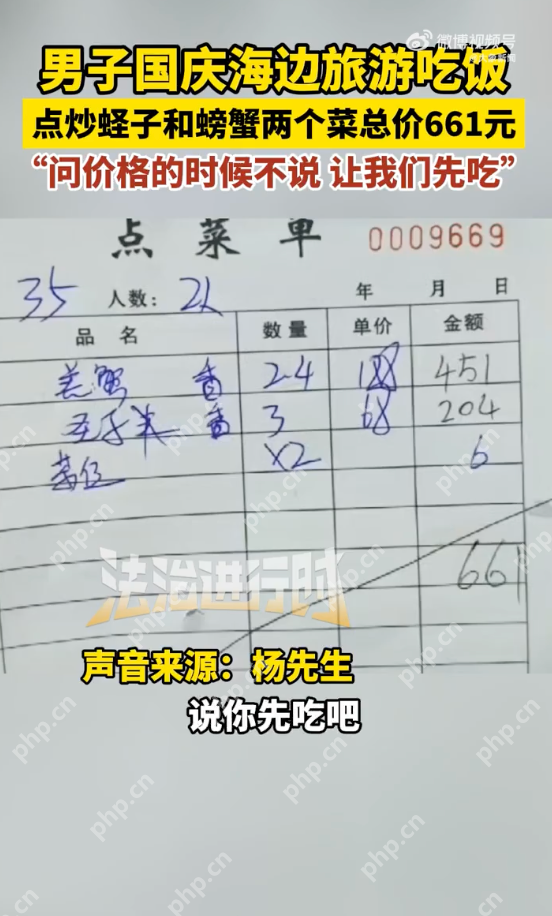 微博视频号
男子国庆海边旅游吃饭
点炒蛏子和螃蟹两个菜总价661元
“问价格的时候不说 让我们先吃”
点菜单 0009669
35 人数: 2人 年 月 日
品名 数量 单价 金额
羔蟹 香 2.4 188 451
3 68 204
x2 6
661
法治进行时
声音来源：杨先生
说你先吃吧
php.cn
php.cn
php.cn
php.cn
php.cn
php.cn
php.cn
php.cn
php.cn
php.cn